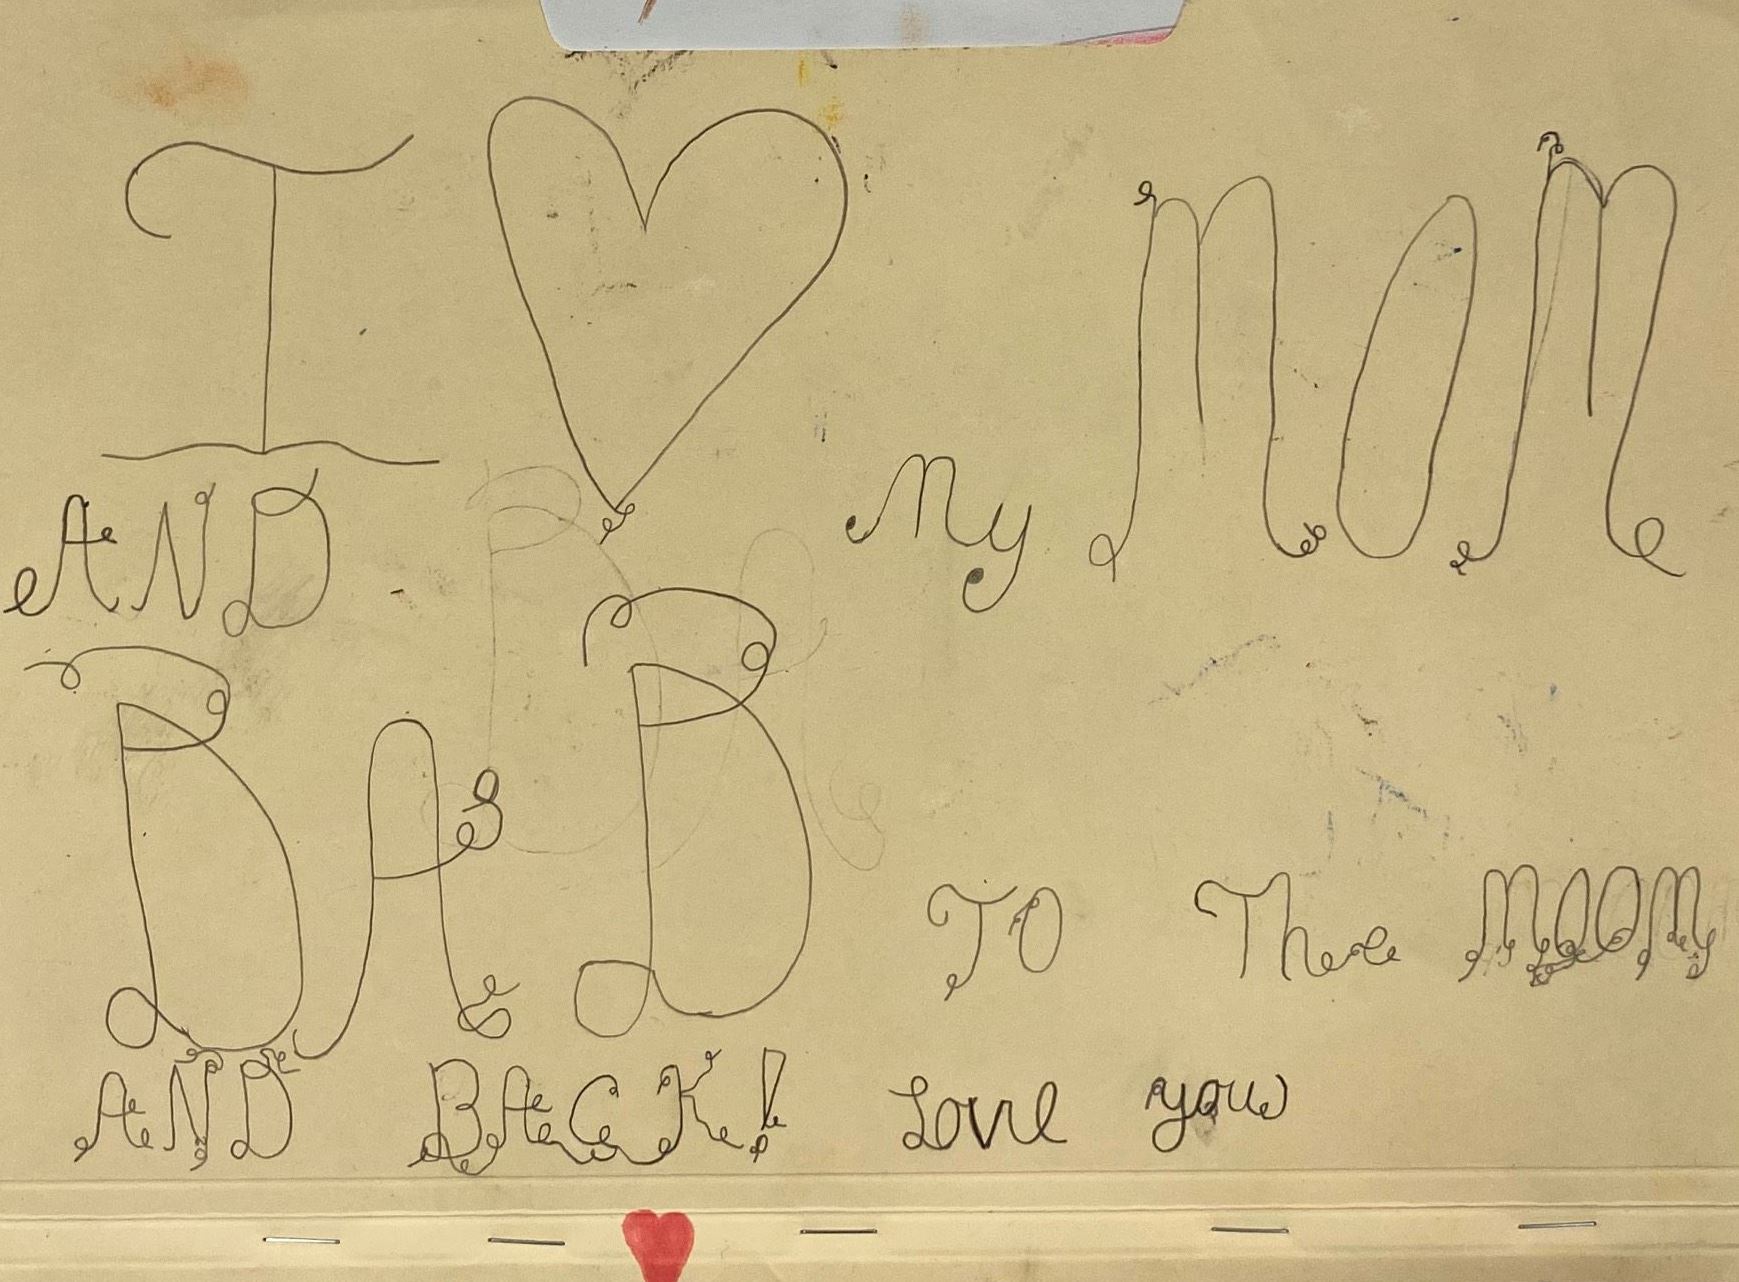 I ♥ My MOM
AND
DAD TO The MOON
AND BACK! Love you